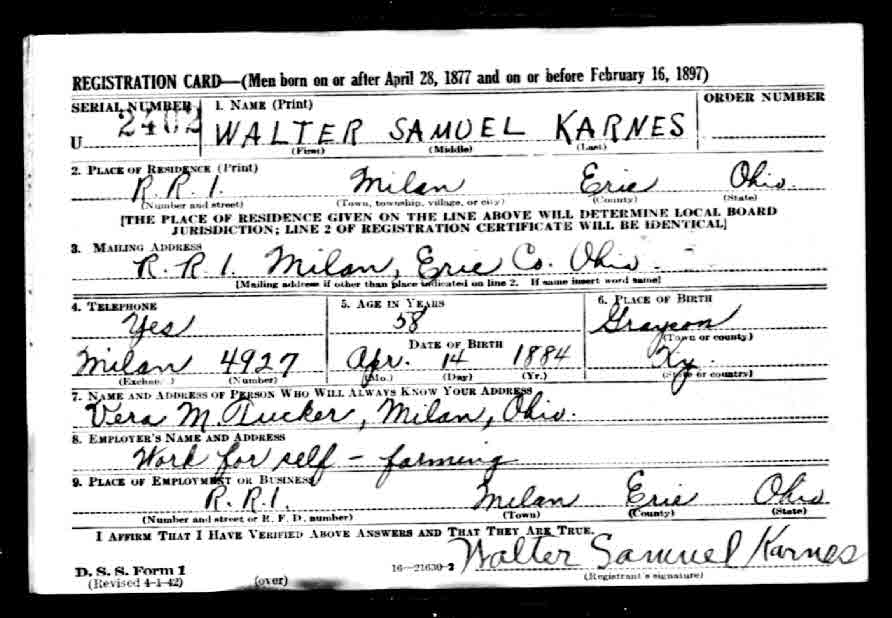 REGISTRATION CARD—(Men born on or after April 28, 1877 and on or before February 16, 1897)
SERIAL NUMBER 1. NAME (Print) ORDER NUMBER
U 2402 WALTER SAMUEL KARNES
(First) (Middle) (Last)
2. PLACE OF RESIDENCE (Print)
R. R 1. Milan Erie Ohio.
(Number and street) (Town, township, village, or city) (County) (State)
[THE PLACE OF RESIDENCE GIVEN ON THE LINE ABOVE WILL DETERMINE LOCAL BOARD
JURISDICTION; LINE 2 OF REGISTRATION CERTIFICATE WILL BE IDENTICAL]
3. MAILING ADDRESS
R. R 1. Milan, Erie Co. Ohio
[Mailing address if other than place indicated on line 2. If same insert word same]
4. TELEPHONE 5. AGE IN YEARS 6. PLACE OF BIRTH
Yes 58 Grayson
DATE OF BIRTH (Town or county)
Milan 4927 Apr. 14 1884 Ky.
(Number) (Mo.) (Day) (Yr.) (State or country)
7. NAME AND ADDRESS OF PERSON WHO WILL ALWAYS KNOW YOUR ADDRESS
Vera M. Tucker, Milan, Ohio.
8. EMPLOYER'S NAME AND ADDRESS
Work for self - farming
9. PLACE OF EMPLOYMENT OR BUSINESS
R. R. 1. Milan Erie Ohio
(Number and street or R. F. D. number) (Town) (County) (State)
I AFFIRM THAT I HAVE VERIFIED ABOVE ANSWERS AND THAT THEY ARE TRUE.
Walter Samuel Karnes
D. S. S. Form 1 16—21630-2
(Revised 4-1-42) (over) (Registrant's signature)